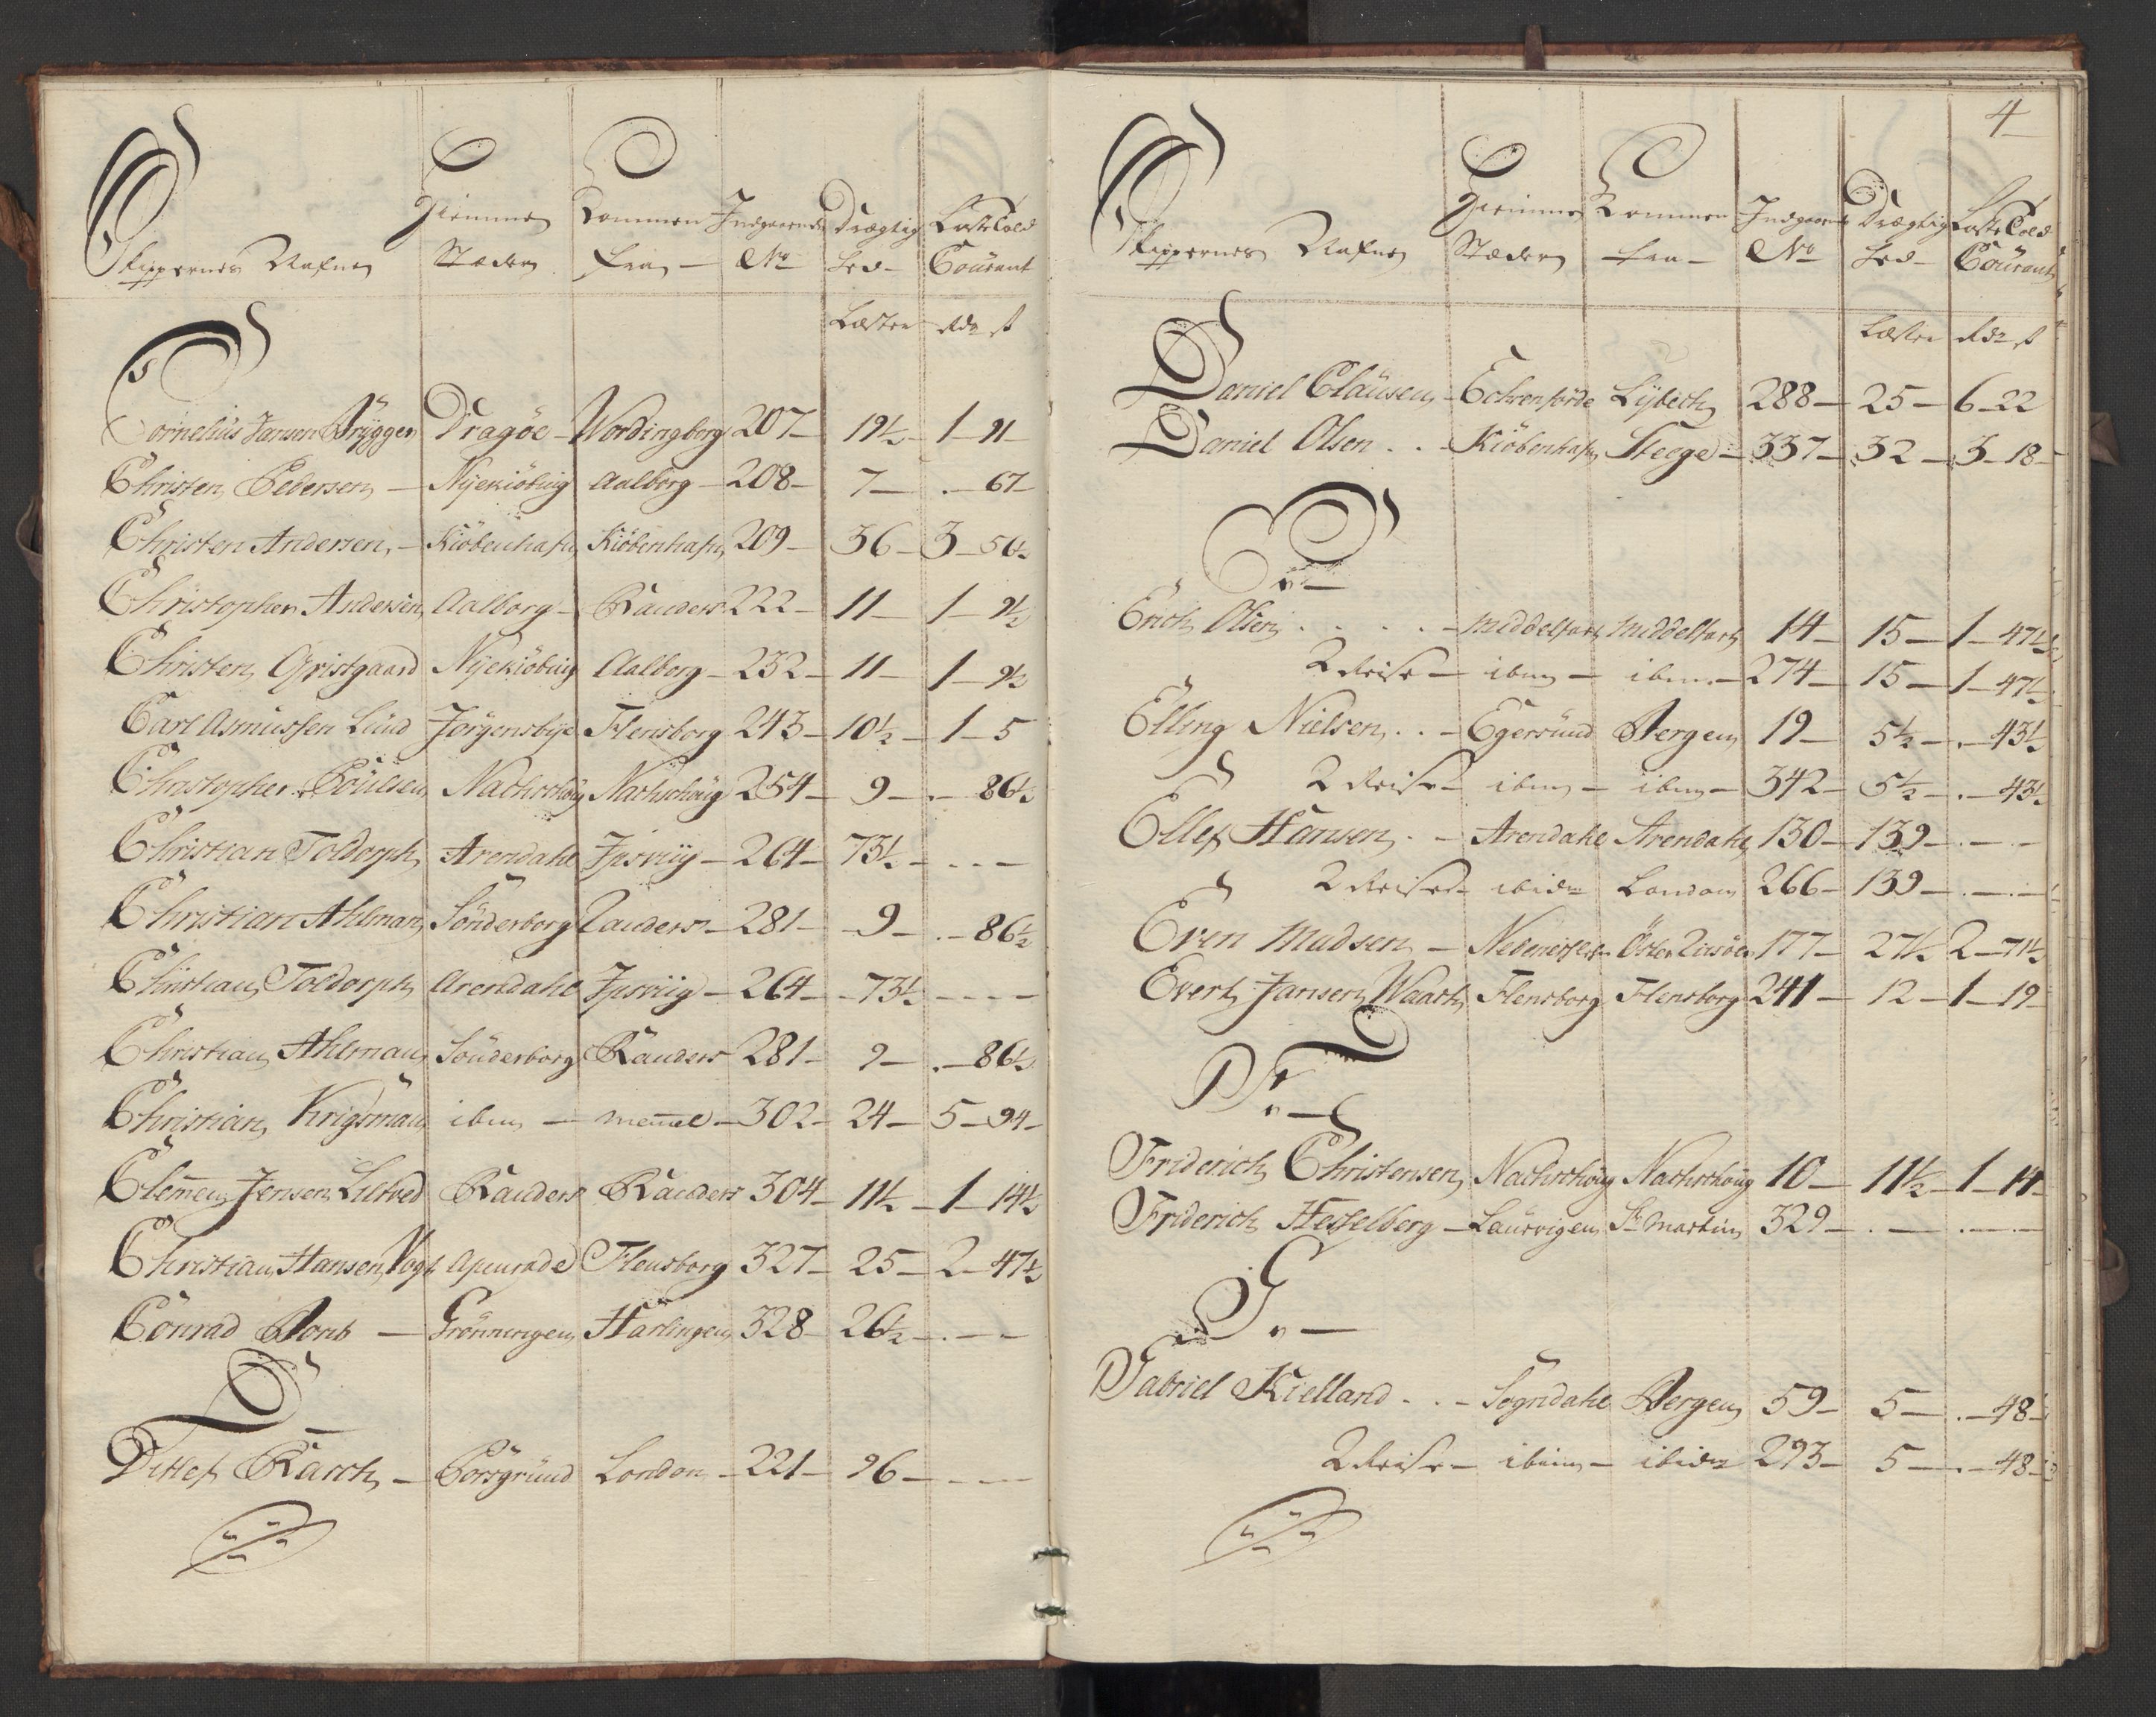 Skippernes Nafne Hiemme Stæder Kommen fra Indgaaende No Drægtighed Læste Told Courant
Læster Rdr ß
C
Cornelius Jansen Brygger Dragöe Wordingborg 207 19½ 1 91
Christen Pedersen Nyekiöbing Aalborg 208 7 . 67
Christen Andersen Kiöbenhafn Kiöbenhafn 209 36 3 56½
Christopher Andersen Aalborg Randers 222 11 1 9½
Christen Qvistgaard Nyekiöbing Aalborg 232 11 1 9½
Carl Asmussen Lund Jörgensbye Flensborg 243 10½ 1 5
Christopher Poulsen Nachschoug Nachschoug 254 9 . 86½
Christian Toldorph Arendahl Ipsviig 264 73½
Christian Ahlman Sönderborg Randers 281 9 . 86½
Christian Toldorph Arendahl Ipsviig 264 73½
Christian Ahlman Sönderborg Randers 281 9 . 86½
Christian Krigsman ibm Memel 302 24 5 94
Clemen Jensen Randers Randers 304 11½ 1 14½
Christian Hansen Vogt Apenrade Flensborg 327 25 2 47½
Conrad Grönningen Harlingen 328 26½
D
Ditlef Rasch Porsgrund London 221 96
4
Skippernes Nafne Hiemme Stæder Kommen fra Indgaaende No Drægtighed Læste Told Courant
Læster Rdr ß
Daniel Clausen Echrenförde Lybech 288 25 6 22
Daniel Olsen Kiöbenhafn Steege 337 32 3 18
E
Erich Olsen Middelfart Middelfart 14 15 1 47½
2 Reise ibm ibm 274 15 1 47½
Elling Nielsen Egersund Bergen 19 5½ . 43½
2 Reise ibm ibm 342 5½ . 43½
Ellef Hansen Arendahl Arendahl 130 139
2 Reise ibidm London 266 139
Even Madsen Öster Riisöer 177 27½ 2 71½
Evert Jansen Waart Flensborg Flensborg 241 12 1 19
F
Friderich Christensen Nachschoug Nachschoug 10 11½ 1 14
Friderich Hesselberg Laurvigen St Martin 329
G
Gabriel Kielland Sogndahl Bergen 59 5 . 48
2 Reise ibm ibidm 293 5 . 48